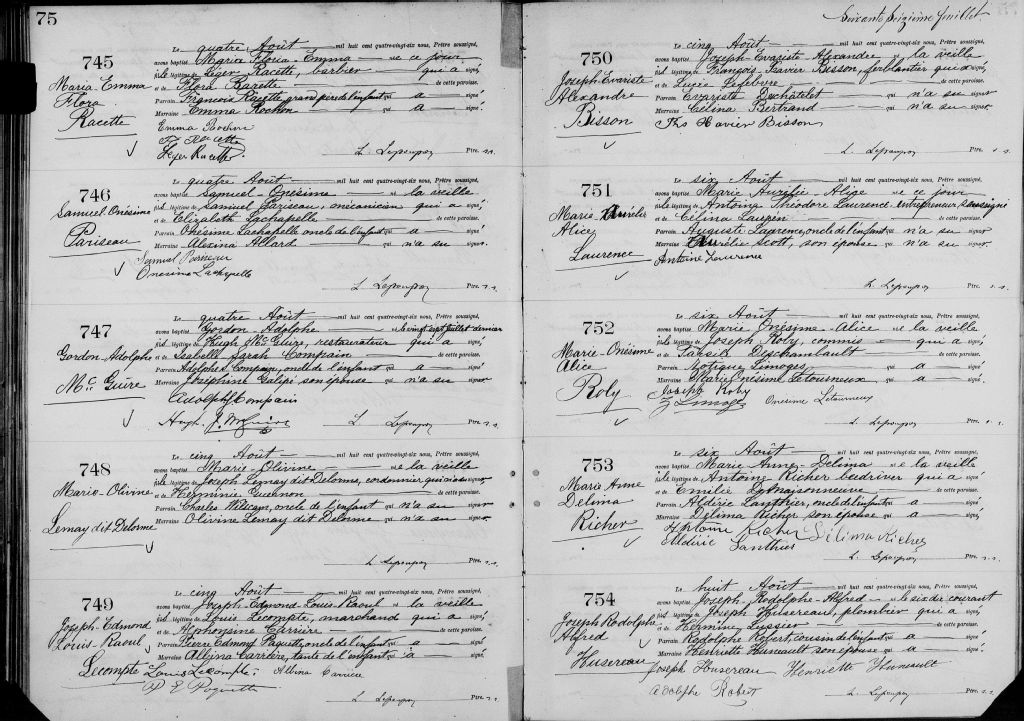 75
745
Maria Emma
Flora
Racette
Le quatre Août mil huit cent quatre-vingt-dix nous, Prêtre soussigné,
avons baptisé Maria Floria-Emma né ce jour
fils légitime de Léger Racette, barbier qui a signé,
et de Flora Bazette de cette paroisse.
Parrain Francois Racette grand père de l'enfant qui a signé
Marraine Emma Rochon qui a signé.
Emma Rochon
F. Racette
Leger Racette
Ptre. s.s.
746
Samuel Onésime
Pariseau
Le quatre Août mil huit cent quatre-vingt-dix nous, Prêtre soussigné,
avons baptisé Samuel-Onésime né la veille
fils légitime de Samuel Pariseau, mécanicien qui a signé,
et de Elizabeth Lachapelle de cette paroisse.
Parrain Onésime Lachapelle oncle de l'enfant qui a signé
Marraine Alexina Allard qui n'a su signer.
Samuel Pariseau
Onesime Lachapelle
Ptre. s.s.
747
Gordon Adolphe
Mc Guire
Le quatre Août mil huit cent quatre-vingt-dix nous, Prêtre soussigné,
avons baptisé Gordon-Adolphe né le vingt sept juillet dernier
fils légitime de Hugh Mc Guire, restaurateur qui a signé,
et de Isabelle Sarah Compain de cette paroisse.
Parrain Adolphe Compain, oncle de l'enfant qui a signé
Marraine Joséphine Galipé son épouse qui n'a su signer
Adolph Compain
Hugh J. McGuire
Ptre. s.s.
748
Marie-Olivine
Lemay dit Delorme
Le cinq Août mil huit cent quatre-vingt-dix nous, Prêtre soussigné,
avons baptisé Marie-Olivine né la veille
fils légitime de Joseph Lemay dit Delorme, cordonnier qui n'a su signer
et de Herminie Quesnon de cette paroisse.
Parrain Charles William, oncle de l'enfant qui n'a su signer
Marraine Olivine Lemay dit Delorme qui n'a su signer
Ptre. s.s.
749
Joseph-Edmond
Louis-Raoul
Lecompte
Le cinq Août mil huit cent quatre-vingt-dix nous, Prêtre soussigné,
avons baptisé Joseph-Edmond-Louis-Raoul né la veille
fils légitime de Louis Lecompte, marchand qui a signé,
et de Alphonsine Carrière de cette paroisse.
Parrain Pierre Edmond Paquette, oncle de l'enfant qui a signé
Marraine Albina Carrière, tante de l'enfant qui a signé.
Louis Lecompte Albina Carriere
P E Paquette
Ptre. s.s.
Soixante Seizième feuillet
750
Joseph-Evariste
Alexandre
Bisson
Le cinq Août mil huit cent quatre-vingt-dix nous, Prêtre soussigné,
avons baptisé Joseph-Evariste Alexandre né la veille
fils légitime de François-Xavier Bisson, ferblantier qui a signé,
et de Lucie Lefebvre de cette paroisse.
Parrain Evariste Duchâtelet qui n'a su signer
Marraine Célina Bertrand qui n'a su signer
Frs Xavier Bisson
Ptre. s.s.
751
Marie-Aurélie
Alice
Laurence
Le six Août mil huit cent quatre-vingt-dix nous, Prêtre soussigné,
avons baptisé Marie Aurélie Alice né ce jour
fille légitime de Antoine Théodore Laurence entrepreneur soussigné
et de Célina Laugèn de cette paroisse.
Parrain Auguste Laurence, oncle de l'enfant qui n'a su signer
Marraine Aurélie Scott, son épouse qui n'a su signer.
Antoine Laurence
Ptre. s.s.
752
Marie-Onésime
Alice
Roby
Le six Août mil huit cent quatre-vingt-dix nous, Prêtre soussigné,
avons baptisé Marie Onésime-Alice né la veille
fille légitime de Joseph Roby, commis qui a signé,
et de Tarsile Deschambault de cette paroisse.
Parrain Notique Limoges qui a signé
Marraine Marie Onésime Letourneux qui a signé
Joseph Roby
Limoge Onesime Letourneux
Ptre. s.s.
753
Marie Anne
Delima
Richer
Le six Août mil huit cent quatre-vingt-dix nous, Prêtre soussigné,
avons baptisé Marie Anne-Delima né la veille
fille légitime de Antoine Richer qui a signé,
et de Emilie Lamaisonneuve de cette paroisse.
Parrain Aldéric Lanthier, oncle de l'enfant qui a signé
Marraine Délima Richer son épouse qui a signé.
Antoine Richer Délima Richer
Aldéric Lanthier
Ptre. s.s.
754
Joseph Rodolphe
Alfred
Husereau
Le huit Août mil huit cent quatre-vingt-dix nous, Prêtre soussigné,
avons baptisé Joseph-Rodolphe-Alfred né le six du courant
fils légitime de Joseph Husereau, plombier qui a signé,
et de Hermine Lussier de cette paroisse.
Parrain Rodolphe Robert, cousin de l'enfant qui a signé
Marraine Henriette Huneault son épouse qui a signé.
Joseph Housereau Henriette Huneault
Adolphe Robert
Ptre. s.s.